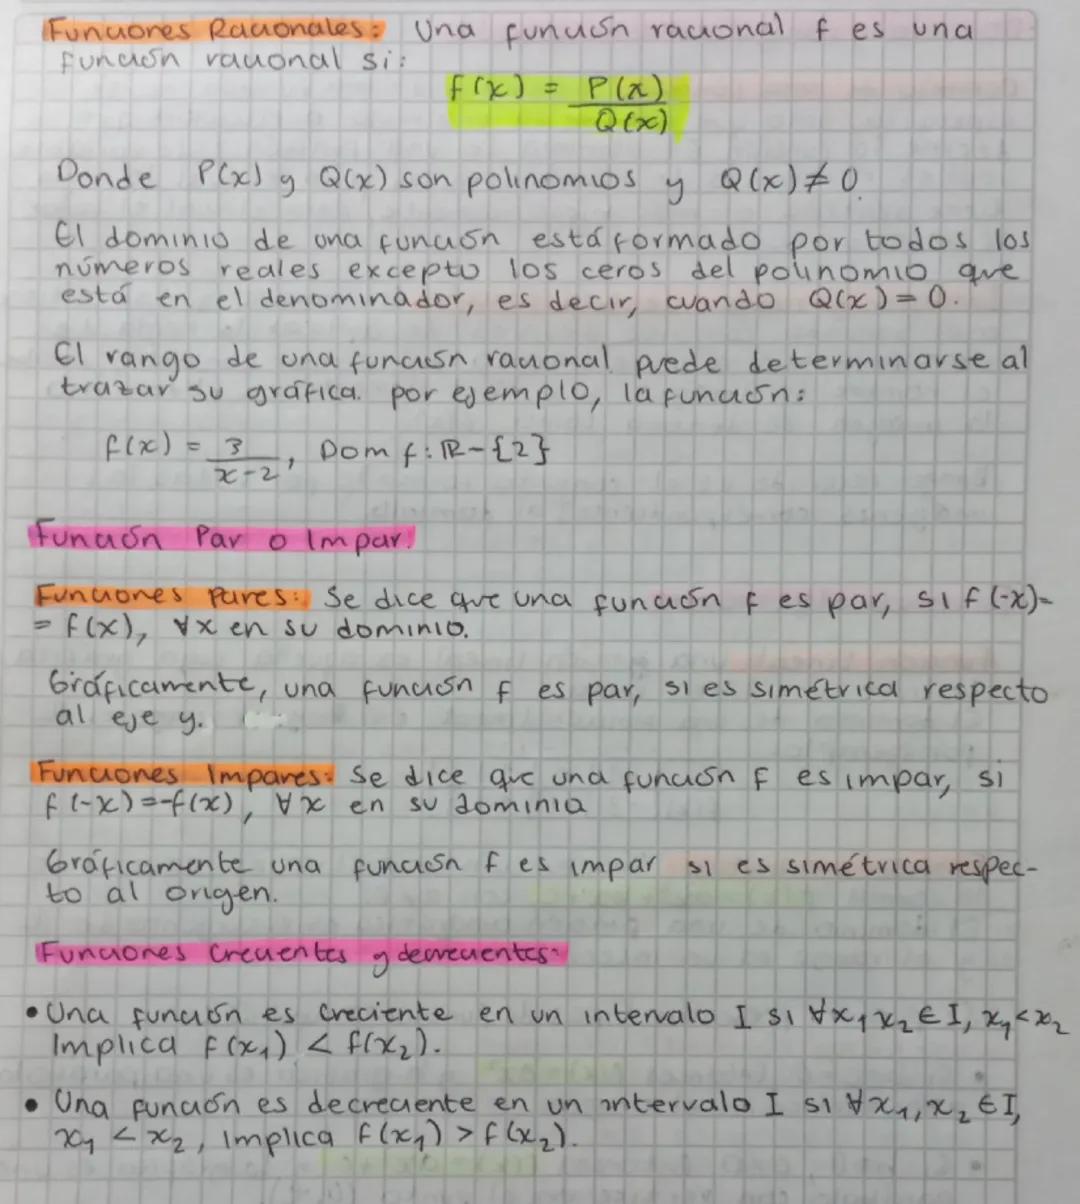 Funciones Racionales: Una función racional f es una
función racional si:
f(x) = P(x)
Q(x)
Donde P(x) y Q(x) son polinomios y Q(x)≠0.
El dominio de una función está formado por todos los
números reales excepto los ceros del polinomio que
está en el denominador, es decir, cuando Q(x)=0.
El rango de una función racional puede determinarse al
trazar su gráfica. por ejemplo, la función:
f(x) = 3/(x-2), Dom f: ℝ-{2}
Función Par o Impar:
Funciones Pares: Se dice que una función f es par, si f(-x)=
= f(x), ∀x en su dominio.
Gráficamente, una función f es par, si es simétrica respecto
al eje y.
Funciones Impares: Se dice que una función f es impar, si
f(-x)=-f(x), ∀x en su dominia
Gráficamente una función f es impar si es simétrica respec-
to al origen.
Funciones Crecientes y decrecientes:
• Una función es creciente en un intervalo I si ∀x₁x₂∈I, x₁<x₂
Implica f(x₁) < f(x₂).
• Una función es decreciente en un intervalo I si ∀x₁,x₂∈I,
x₁ < x₂, Implica f(x₁) > f(x₂).